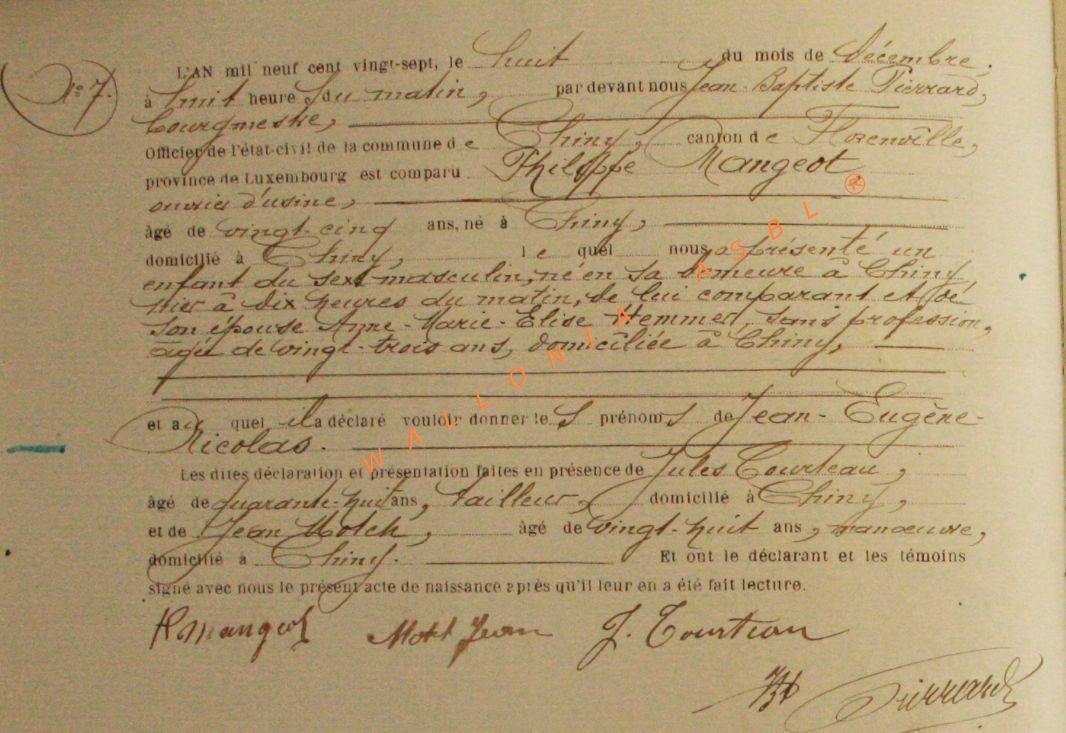 N° 7.
L'AN mil neuf cent vingt-sept, le huit du mois de Décembre,
à huit heure s du matin, par devant nous Jean-Baptiste Pierrard,
bourgmestre,
Officier de l'état-civil de la commune de Chiny, canton de Florenville,
province de Luxembourg est comparu Philippe Mangeot,
ouvrier d'usine,
âgé de vingt-cinq ans, né à Chiny,
domicilié à Chiny, le quel nous a présenté un
enfant du sexe masculin, né en sa demeure à Chiny
hier à dix heures du matin, de lui comparant et de
son épouse Anne-Marie-Elise Hemmer, sans profession,
âgée de vingt-trois ans, domiciliée à Chiny,
et au quel il a déclaré vouloir donner le s prénom s de Jean-Eugène-
Nicolas.
Les dites déclaration et présentation faites en présence de Jules Courteau,
âgé de quarante-huit ans, tailleur, domicilié à Chiny,
et de Jean Motch, âgé de vingt-huit ans, manoeuvre,
domicilié à Chiny. Et ont le déclarant et les témoins
signé avec nous le présent acte de naissance après qu'il leur en a été fait lecture.
Mangeot Jean J. Courteau
Pierrard
WALLONIA ASBL ®